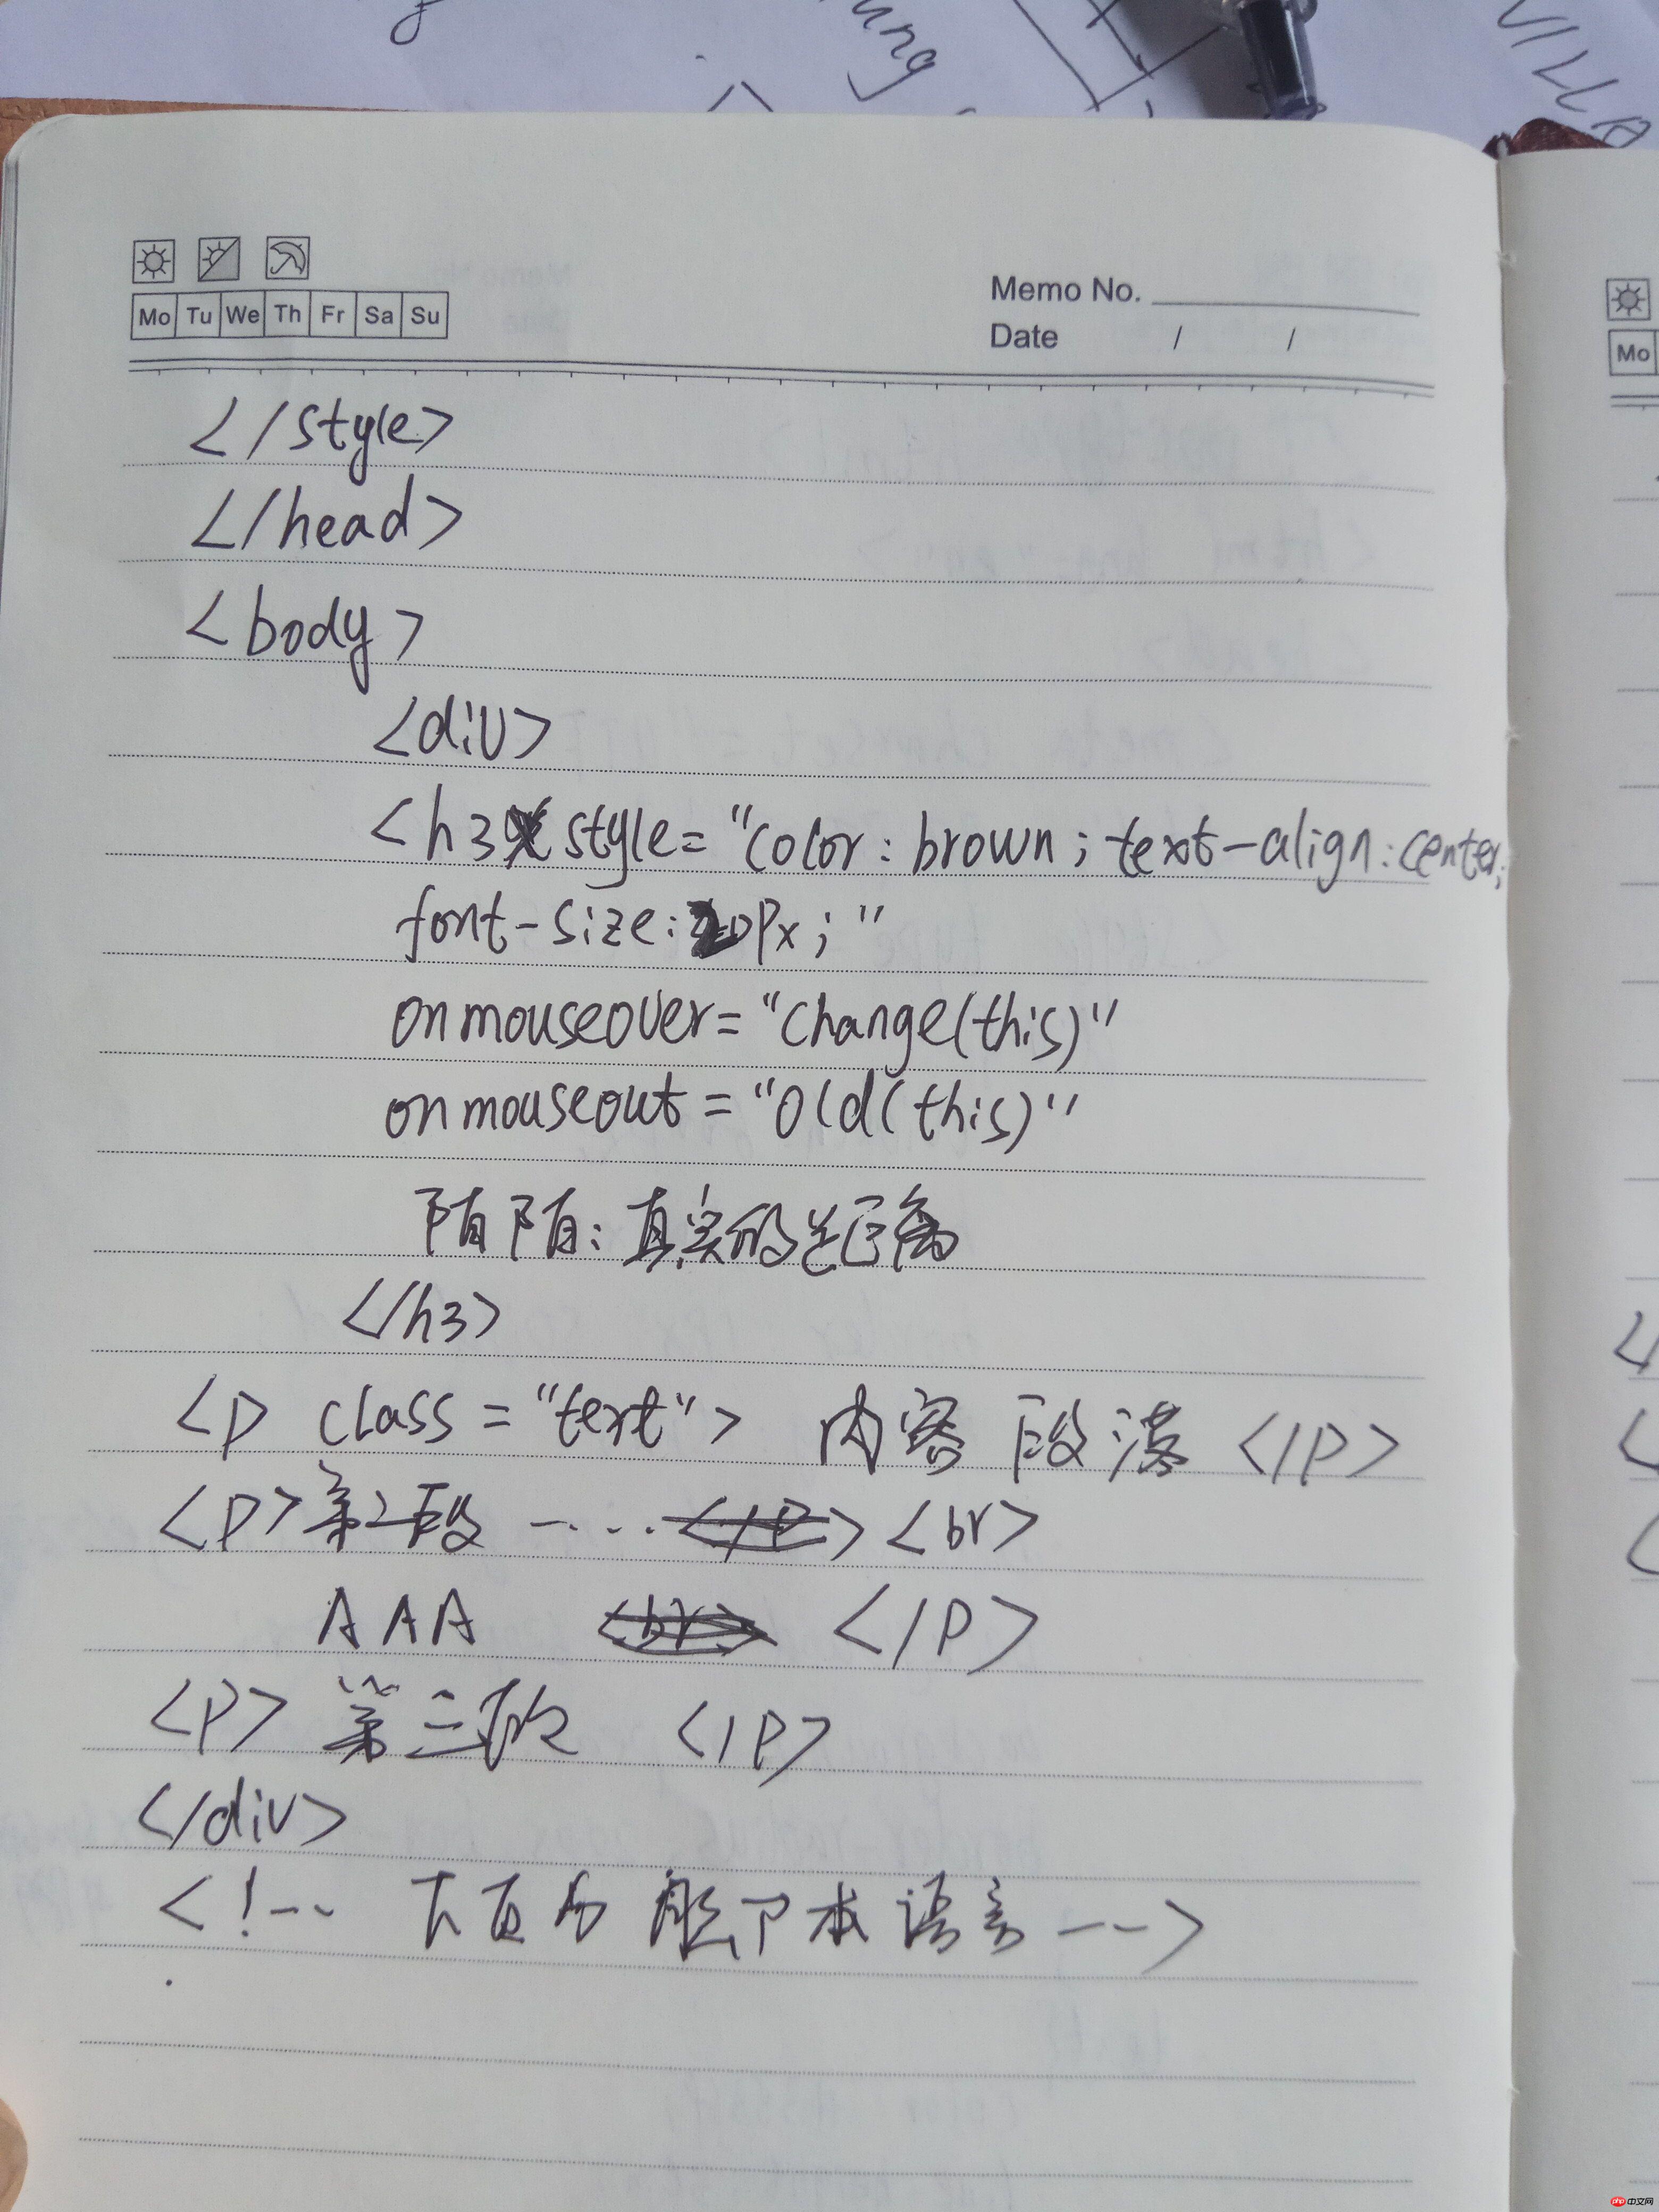 ung
VILLA
Mo Tu We Th Fr Sa Su
Memo No.
Date / /
Mo
</style>
</head>
<body>
<div>
<h3 style="color:brown;text-align:center;
font-size:20px;"
onmouseover="change(this)"
onmouseout="old(this)"
陌陌:真实的距离
</h3>
<p class="text"> 内容 段落 </p>
<p>第二段 ······ <br>
AAA </p>
<p> 第三段 </p>
</div>
<!-- 下页为 脚本语言 -->
php 中文网